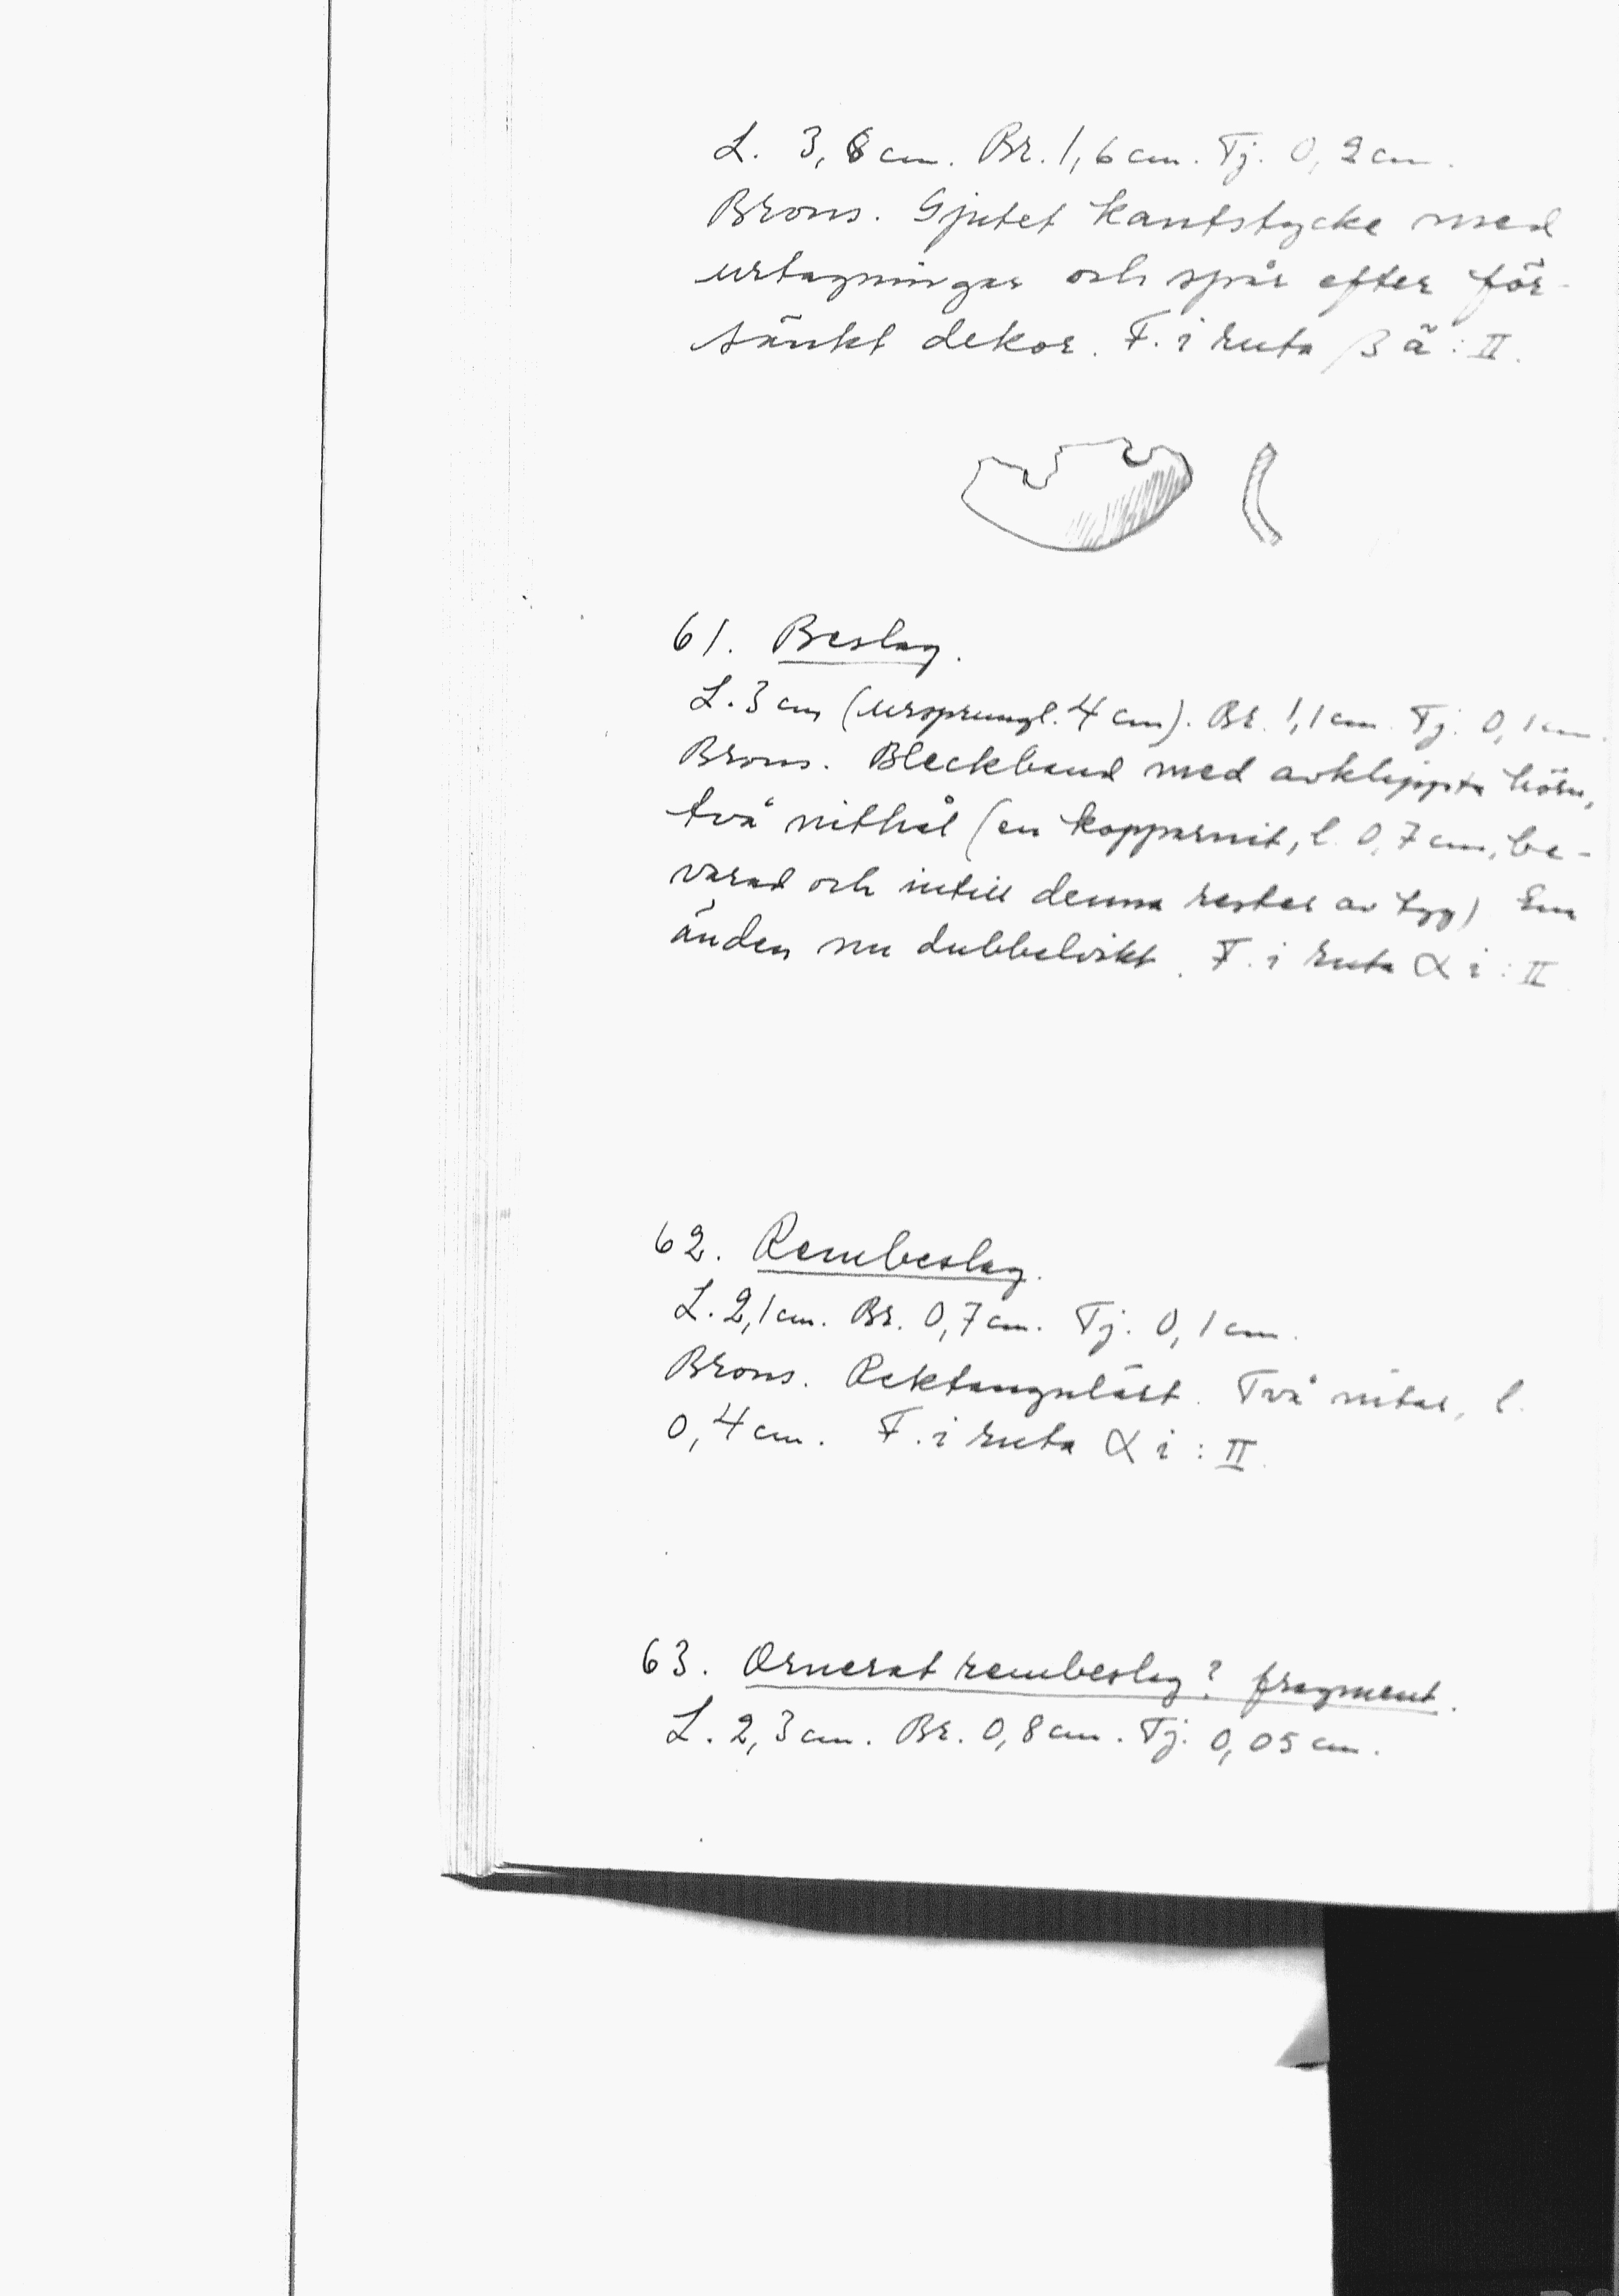 L. 3,8 cm. Br. 1,6 cm. Tj. 0,2 cm.
Brons. Gjutet kantstycke med
urtagningar och spår efter för-
sänkt dekor. F. i ruta β ä : II.
61. Beslag.
L. 3 cm (ursprungl. 4 cm). Br. 1,1 cm. Tj. 0,1 cm.
Brons. Bleckband med avklippta hörn,
två nithål (en kopparnit, l. 0,7 cm, be-
varad och intill denna rester av tyg) Ena
änden nu dubbelvikt. F. i ruta α i : II
62. Rembeslag.
L. 2,1 cm. Br. 0,7 cm. Tj. 0,1 cm.
Brons. Rektangulärt. Två nitar, l.
0,4 cm. F. i ruta α i : II.
63. Ornerat rembeslag? fragment.
L. 2,3 cm. Br. 0,8 cm. Tj. 0,05 cm.